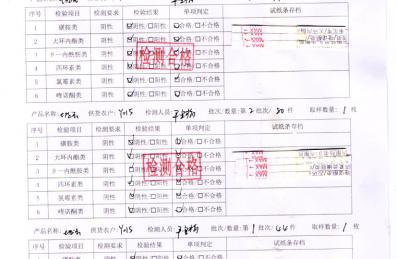 序号 检验项目 检测要求 检验结果 单项判定 试纸条存档
1 磺胺类 阴性 ☑阴性 □阳性 ☑合格 □不合格
2 大环内酯类 阴性 ☑阴性 □阳性 ☑合格 □不合格
3 β-内酰胺类 阴性 ☑阴性 □阳性 ☑合格 □不合格
4 四环素类 阴性 ☑阴性 □阳性 ☑合格 □不合格
5 氯霉素类 阴性 ☑阴性 □阳性 ☑合格 □不合格
6 喹诺酮类 阴性 ☑阴性 □阳性 ☑合格 □不合格
检测合格
产品名称: 供货农户: Y415 检测人员: 批次/数量:第2批次/30件 取样数量:1枚
序号 检验项目 检测要求 检验结果 单项判定 试纸条存档
1 磺胺类 阴性 ☑阴性 □阳性 ☑合格 □不合格
2 大环内酯类 阴性 ☑阴性 □阳性 ☑合格 □不合格
3 β-内酰胺类 阴性 ☑阴性 □阳性 ☑合格 □不合格
4 四环素类 阴性 ☑阴性 □阳性 ☑合格 □不合格
5 氯霉素类 阴性 ☑阴性 □阳性 ☑合格 □不合格
6 喹诺酮类 阴性 ☑阴性 □阳性 ☑合格 □不合格
检测合格
产品名称: 供货农户: Y415 检测人员: 批次/数量:第1批次/44件 取样数量:1枚
序号 检验项目 检测要求 检验结果 单项判定 试纸条存档